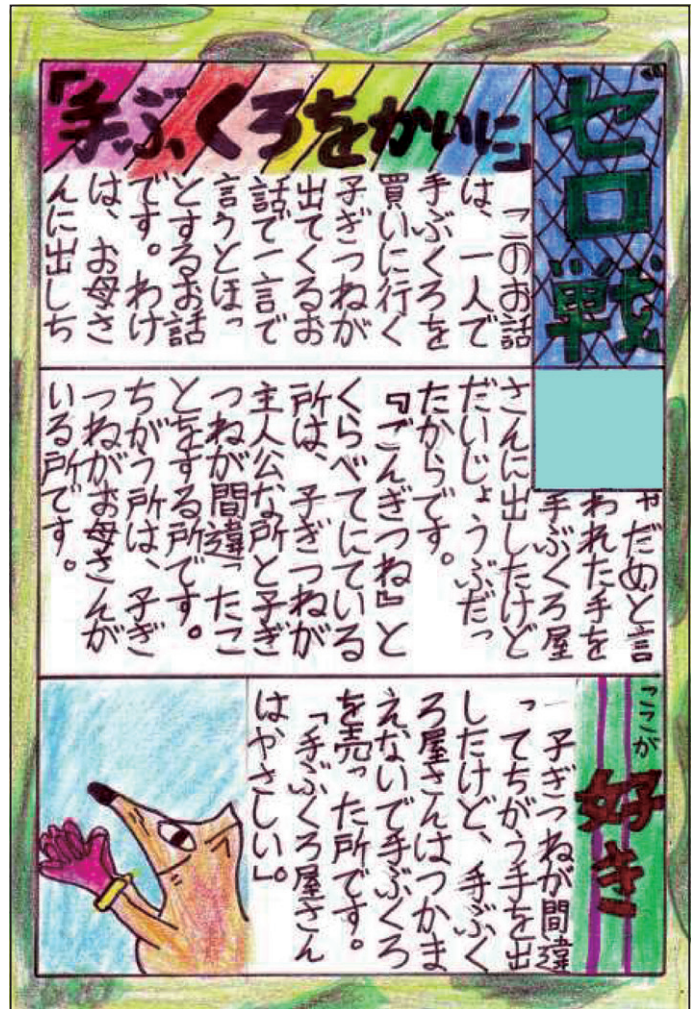 ゼロ戦
「手ぶくろをかいに」
このお話
は、一人で
手ぶくろを
買いに行く
子ぎつねが
出てくるお
話で一言で
言うとほっ
とするお話
です。わけ
は、お母さ
んに出しち
ゃだめと言
われた手を
手ぶくろ屋
さんに出したけど
だいじょうぶだっ
たからです。
『ごんぎつね』と
くらべてにている
所は、子ぎつねが
主人公な所と子ぎ
つねが間違ったこ
とをする所です。
ちがう所は、子ぎ
つねがお母さんが
いる所です。
ここが
好き
子ぎつねが間違
ってちがう手を出
したけど、手ぶく
ろ屋さんはつかま
えないで手ぶくろ
を売った所です。
「手ぶくろ屋さん
はやさしい」。